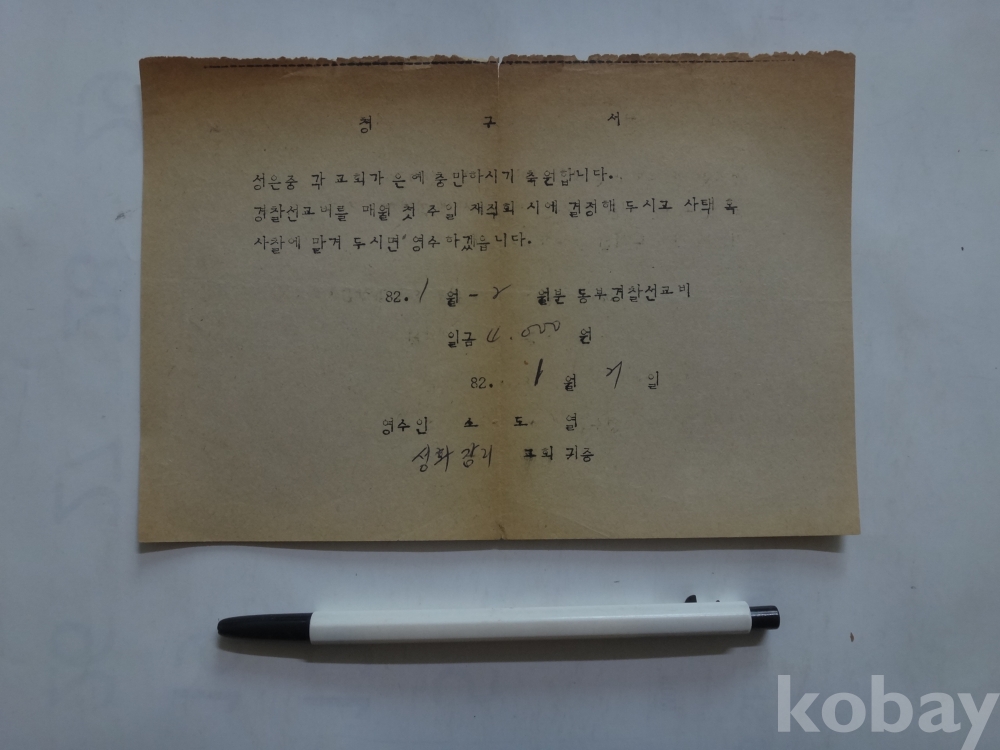 청 구 서
성은중 각 교회가 은혜 충만하시기 축원합니다.
경찰선교비를 매월 첫 주일 재직회 시에 결정해 두시고 사택 혹
사찰에 맡겨 두시면 영수하겠읍니다.
82. 1 월 - 2 월분 동부경찰선교비
일금 4.000 원
82. 1 월 21 일
영수인 소 도 열
성화장리 교회 귀중
kobay